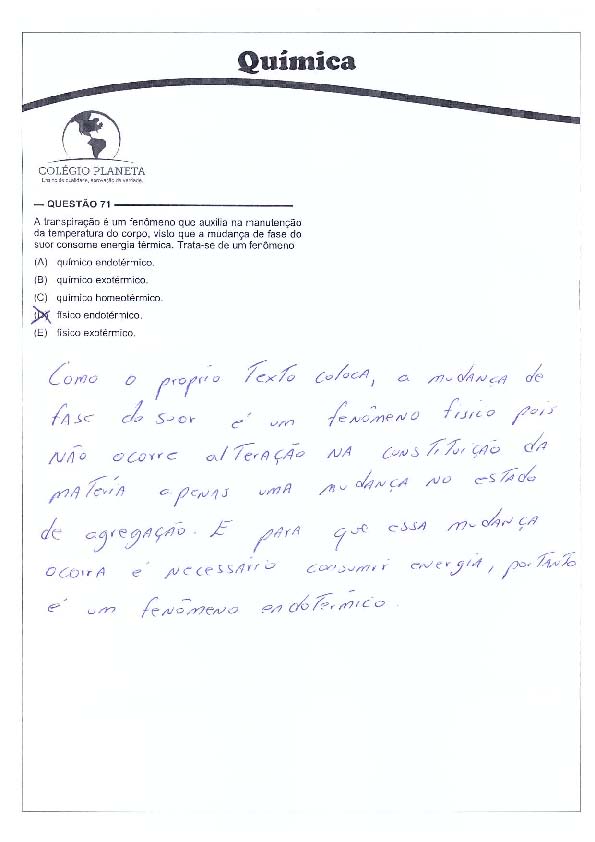 Química
COLÉGIO PLANETA
Ensino de qualidade, aprovação de verdade.
QUESTÃO 71
A transpiração é um fenômeno que auxilia na manutenção
da temperatura do corpo, visto que a mudança de fase do
suor consome energia térmica. Trata-se de um fenômeno
(A) químico endotérmico.
(B) químico exotérmico.
(C) químico homeotérmico.
(D) físico endotérmico.
(E) físico exotérmico.
Como o proprio Texto coloca, a mudança de
fase do suor é um fenômeno físico pois
não ocorre alteração na constituição da
matéria apenas uma mudança no estado
de agregação. E para que essa mudança
ocorra é necessário consumir energia, portanto
é um fenômeno endotérmico.